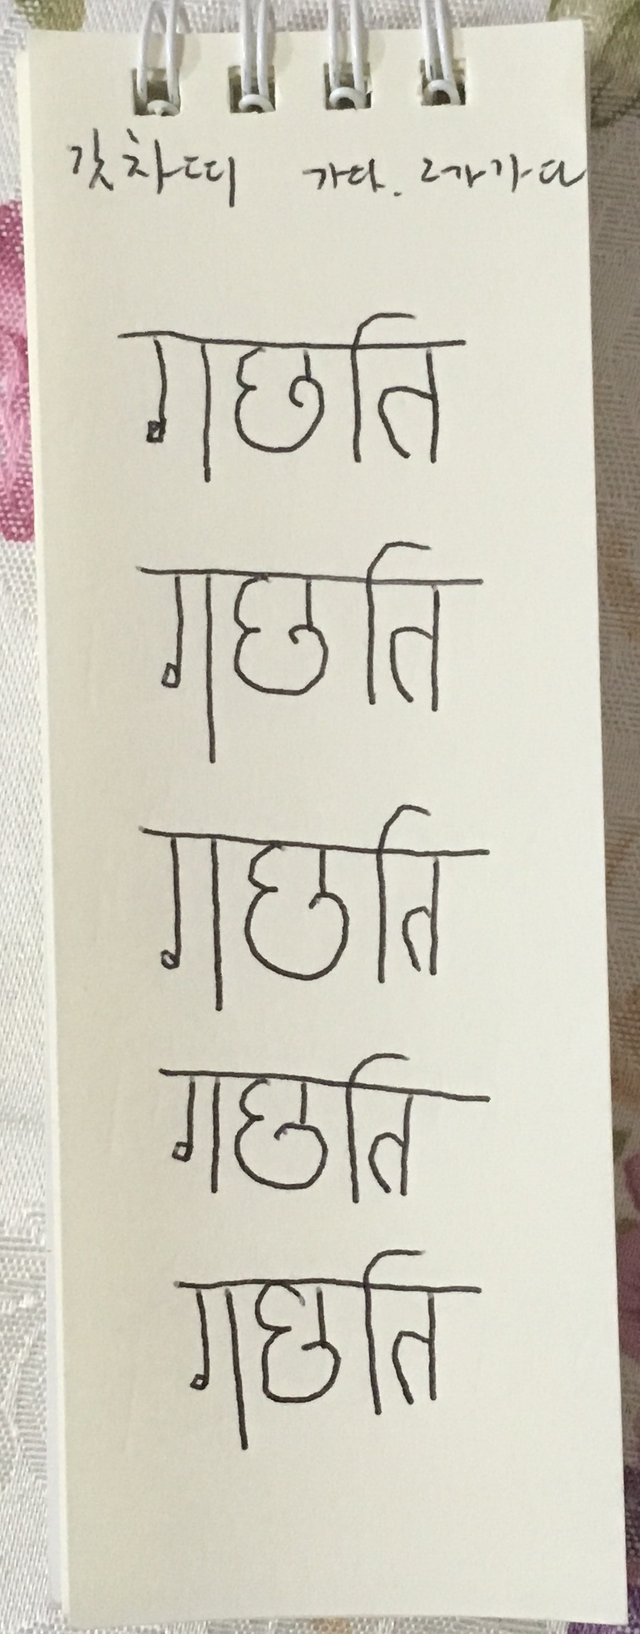 갓차띠 가다. 그가 가다
गछति
गछति
गछति
गछति
गछति